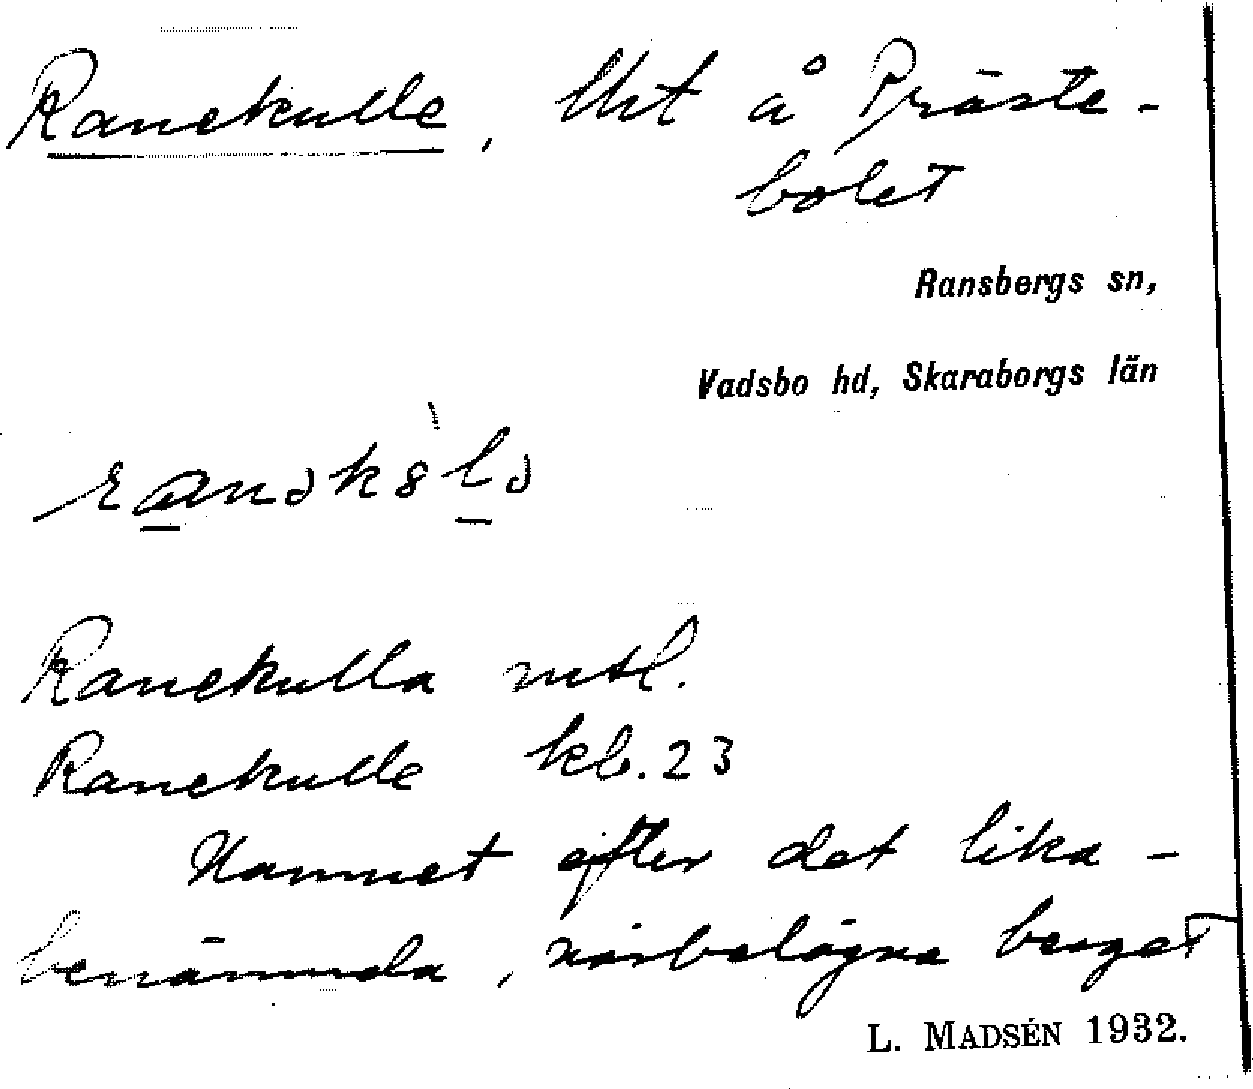 Ranekulle, lht å Präste-
bolet
Ransbergs sn,
Vadsbo hd, Skaraborgs län
Ranekulla mtl.
Ranekulle kb. 23
Namnet efter det lika-
benämnda, närbelägna berget
L. MADSÉN 1932.